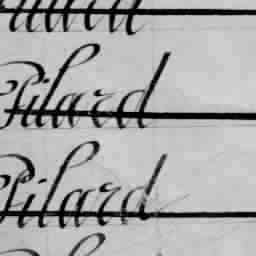 Pilard
Pilard